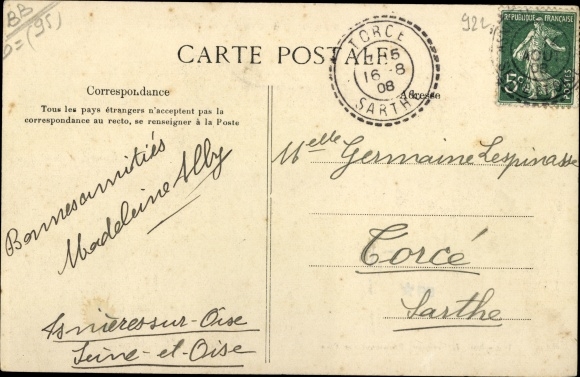 BB
D=(95)
922
CARTE POSTALE
Correspondance
Tous les pays étrangers n'acceptent pas la
correspondance au recto, se renseigner à la Poste
Adresse
TORCÉ
16-8
08
SARTHE
RÉPUBLIQUE FRANÇAISE
5c
POSTES
Bonnes amitiés
Madeleine Alby
Asnières sur-Oise
Seine-et-Oise
Melle Germaine Lespinasse
Torcé
Sarthe